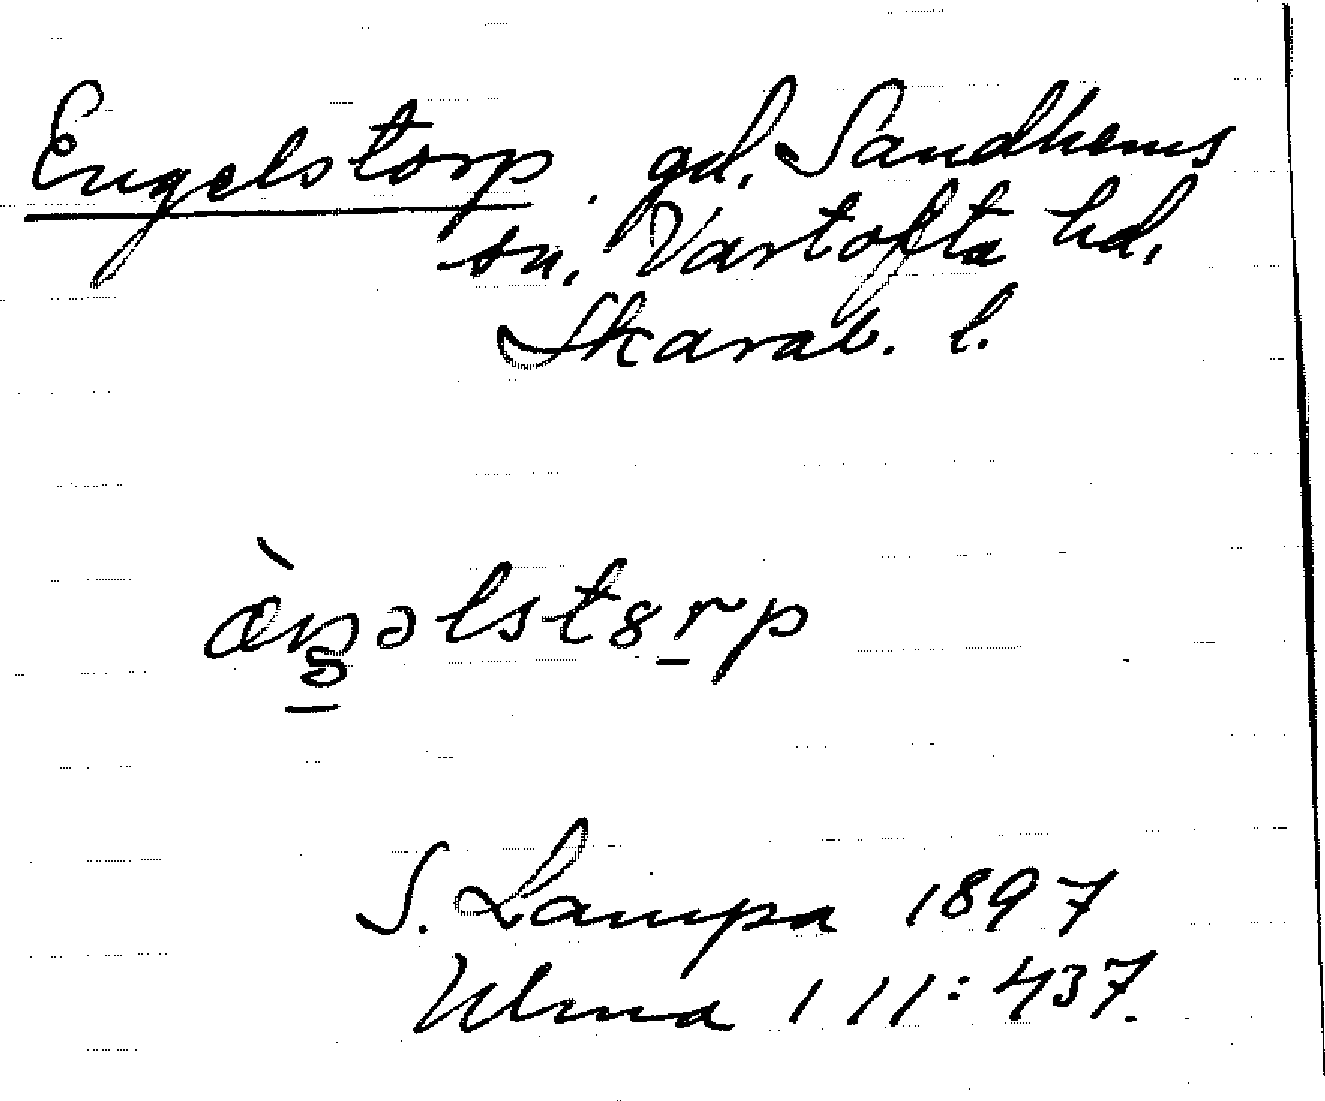 Engelstorp. gd. Sandhems
sn. Vartofta hd.
Skarab. l.
S. Lampa 1897
Ulma 111:437.